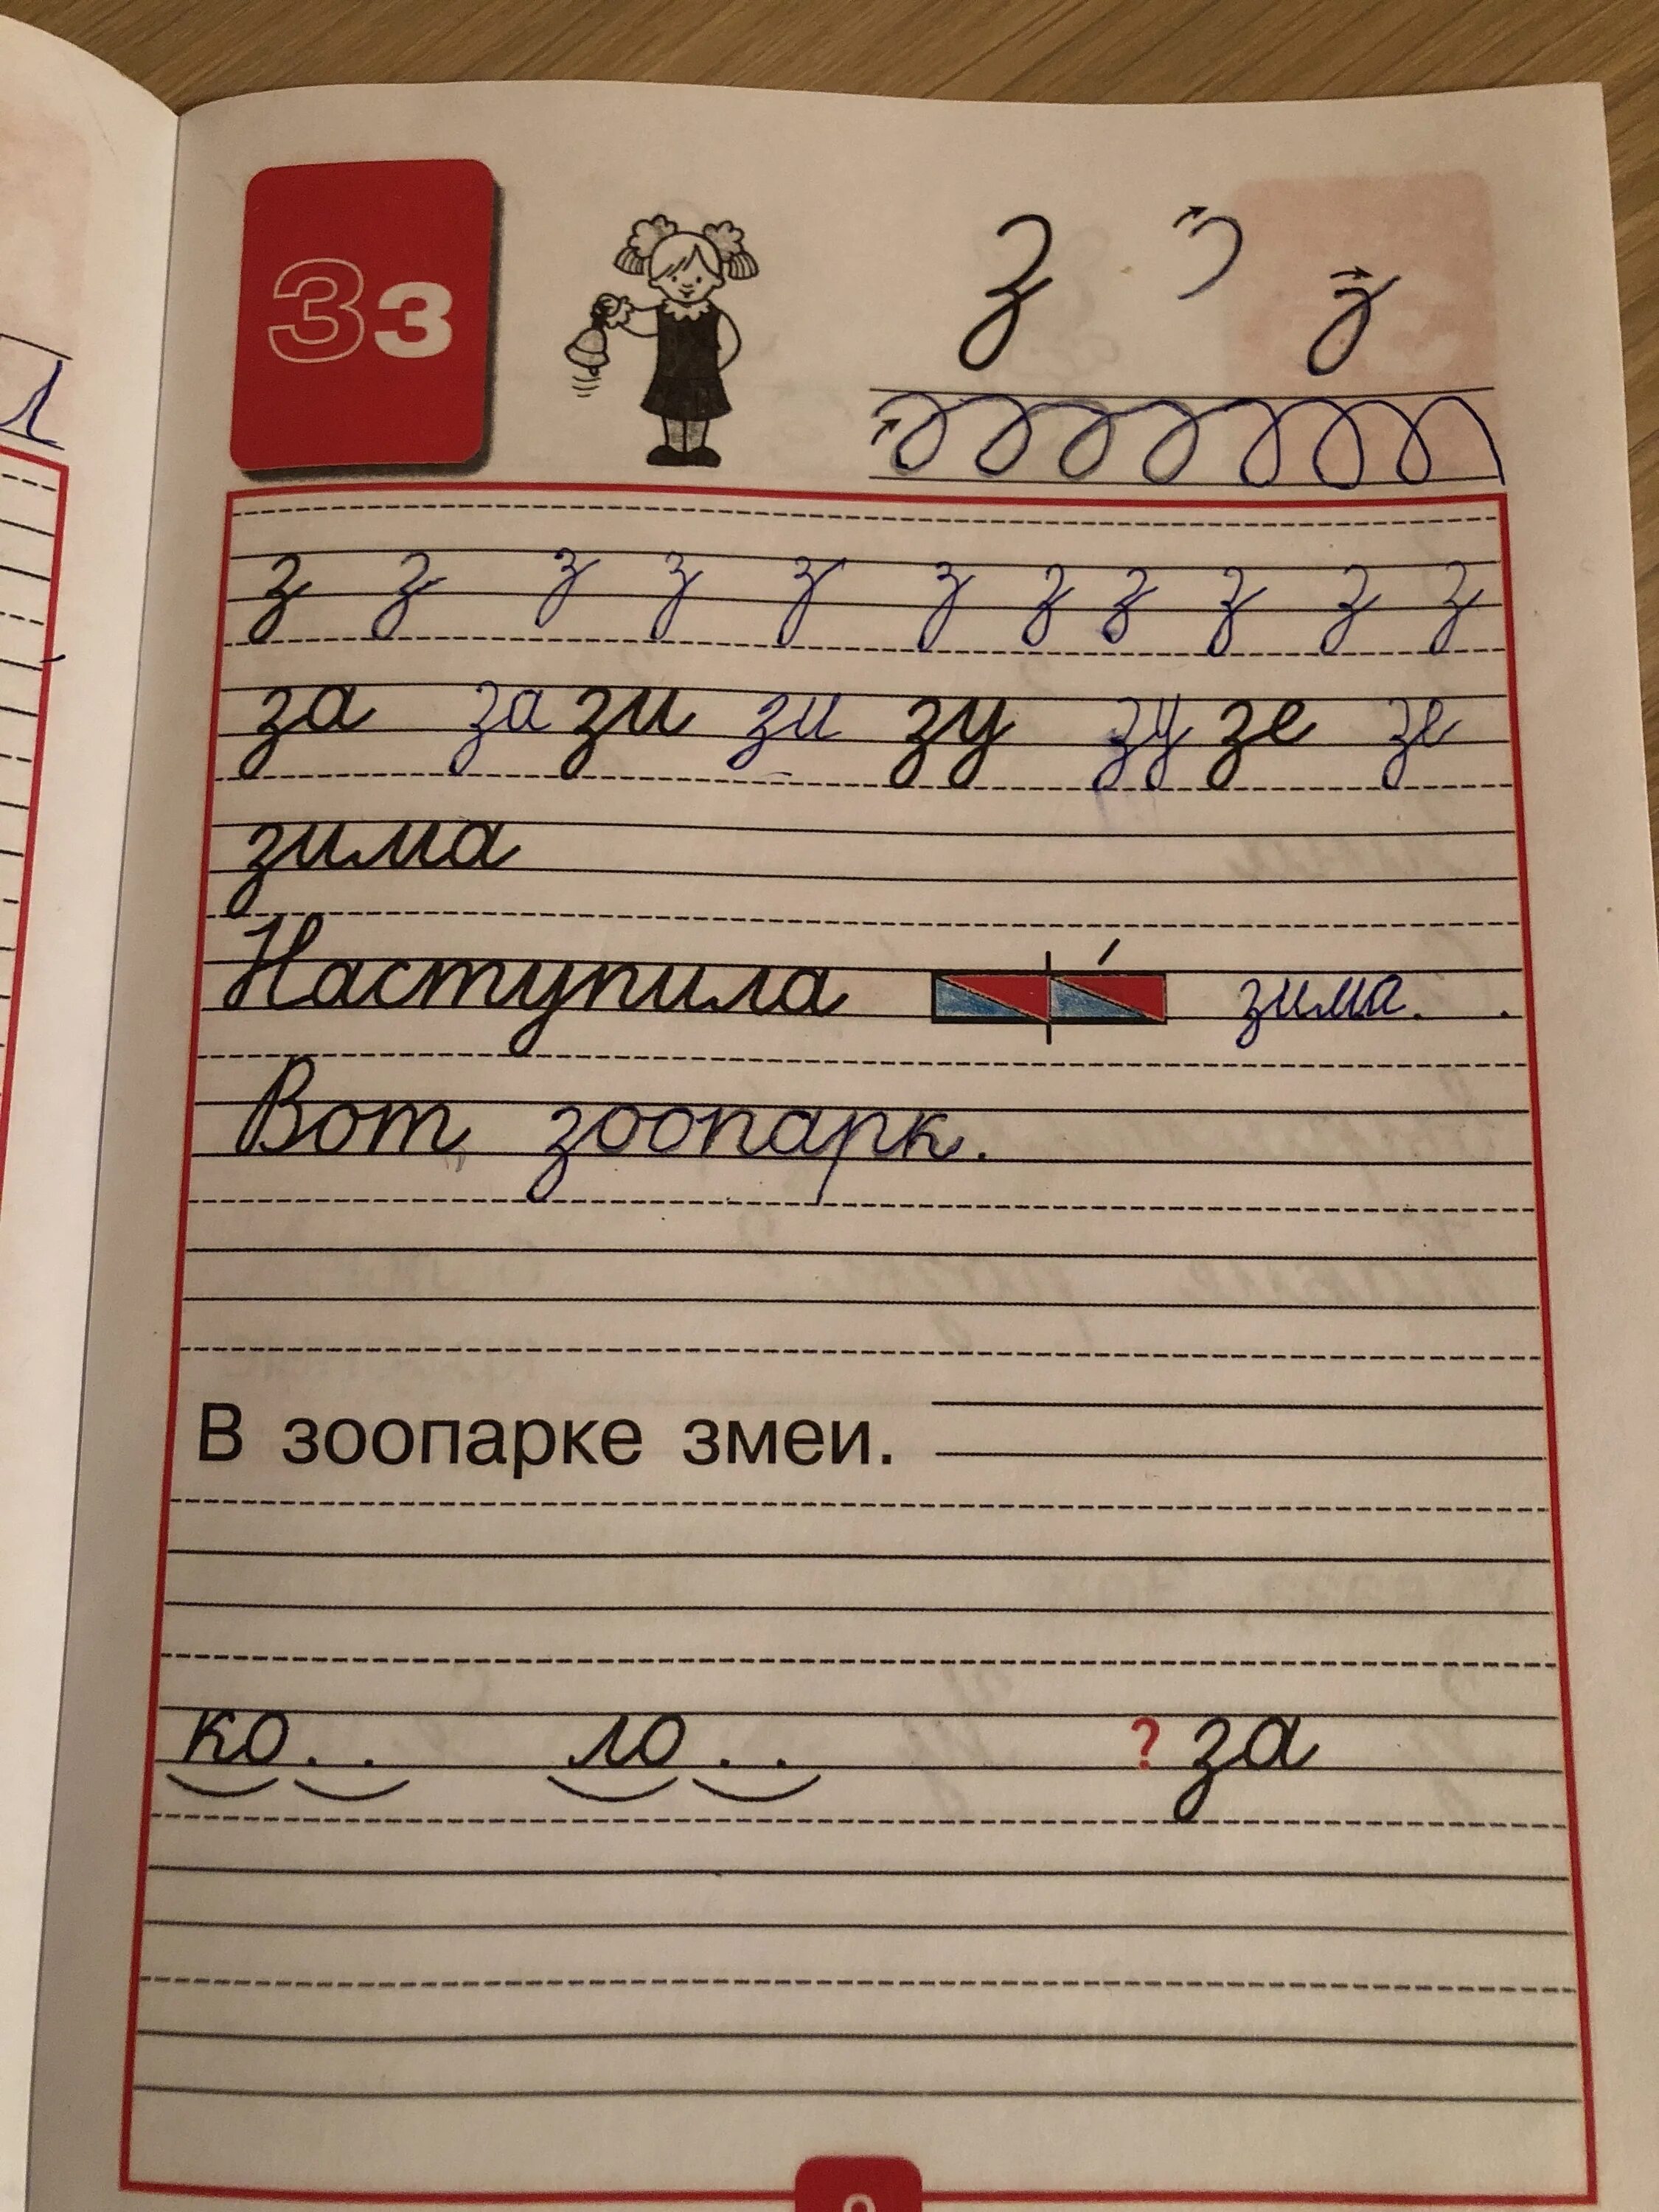 Зз
З з
з з з з з з з з з з з
за за зи зи зу зу зе зе
зима
Наступила зима. .
Вот зоопарк.
В зоопарке змеи.
ко. . ло. . ? за